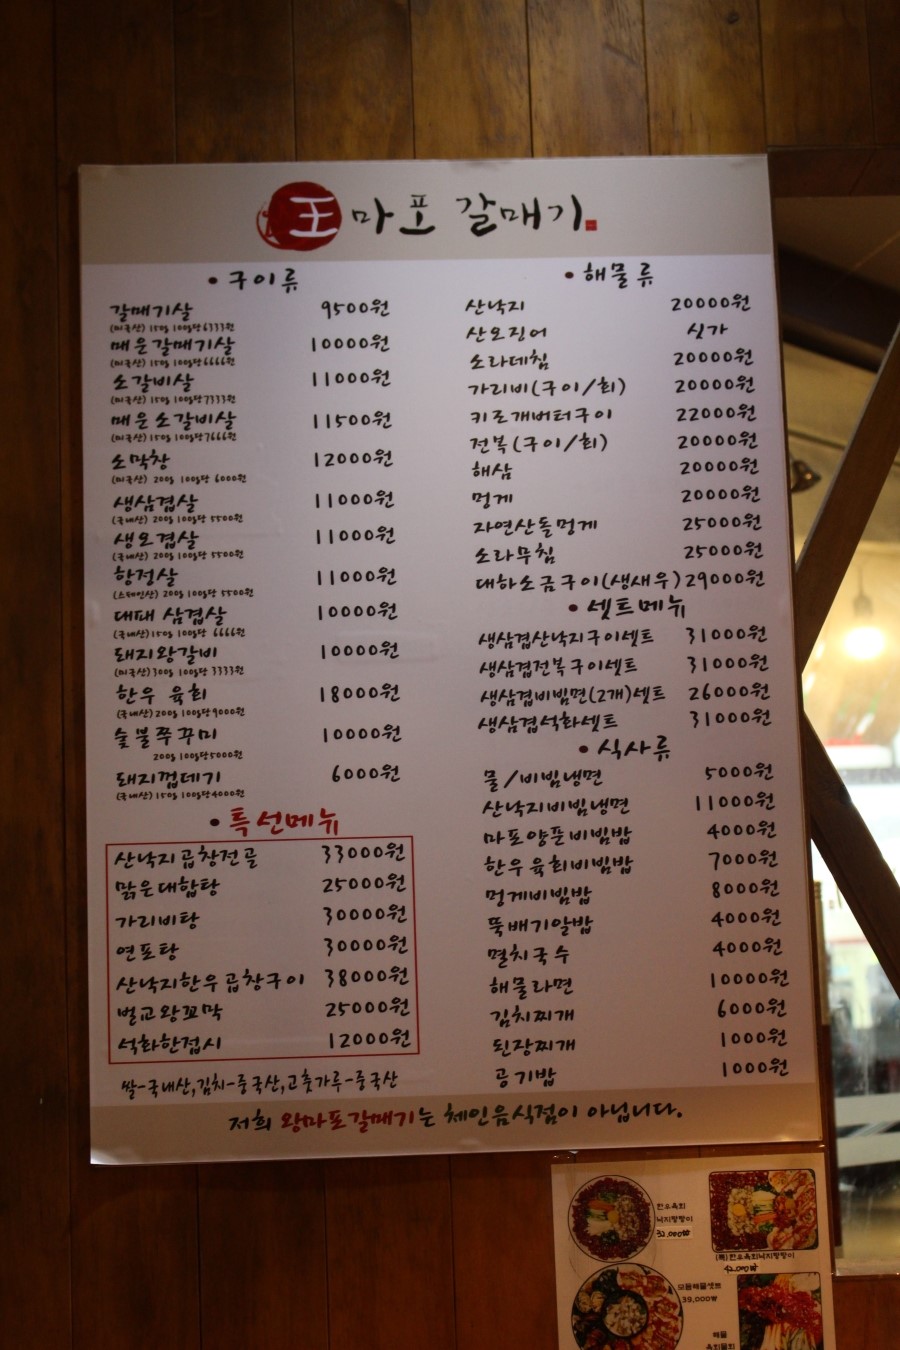 王 마포 갈매기
• 구이류
갈매기살 9500원
(미국산) 150g 100g당6333원
매운갈매기살 10000원
(미국산) 150g 100g당6666원
소갈비살 11000원
(미국산) 150g 100g당7333원
매운소갈비살 11500원
(미국산) 150g 100g당7666원
소막창 12000원
(미국산) 200g 100g당 6000원
생삼겹살 11000원
(국내산) 200g 100g당 5500원
생오겹살 11000원
(국내산) 200g 100g당 5500원
항정살 11000원
(스페인산) 200g 100g당 5500원
대패 삼겹살 10000원
(국내산) 150g 100g당 6666원
돼지왕갈비 10000원
(미국산) 300g 100g당 3333원
한우 육회 18000원
(국내산) 200g 100g당9000원
숯불쭈꾸미 10000원
200g 100g당5000원
돼지껍데기 6000원
(국내산) 150g 100g당4000원
• 특선메뉴
산낙지곱창전골 33000원
맑은대합탕 25000원
가리비탕 30000원
연포탕 30000원
산낙지한우곱창구이 38000원
벌교왕꼬막 25000원
석화한접시 12000원
쌀-국내산,김치-중국산,고춧가루-중국산
• 해물류
산낙지 20000원
산오징어 싯가
소라데침 20000원
가리비(구이/회) 20000원
키조개버터구이 22000원
전복(구이/회) 20000원
해삼 20000원
멍게 20000원
자연산돌멍게 25000원
소라무침 25000원
대하소금구이(생새우) 29000원
• 셋트메뉴
생삼겹산낙지구이셋트 31000원
생삼겹전복구이셋트 31000원
생삼겹비빔면(2개)셋트 26000원
생삼겹석화셋트 31000원
• 식사류
물/비빔냉면 5000원
산낙지비빔냉면 11000원
마포양푼비빔밥 4000원
한우육회비빔밥 7000원
멍게비빔밥 8000원
뚝배기알밥 4000원
멸치국수 4000원
해물라면 10000원
김치찌개 6000원
된장찌개 1000원
공기밥 1000원
저희 왕마포갈매기는 체인음식점이 아닙니다.
한우육회
낙지탕탕이
32,000₩
(특)한우육회낙지탕탕이
42,000₩
모듬해물셋트
39,000₩
해물
육회물회